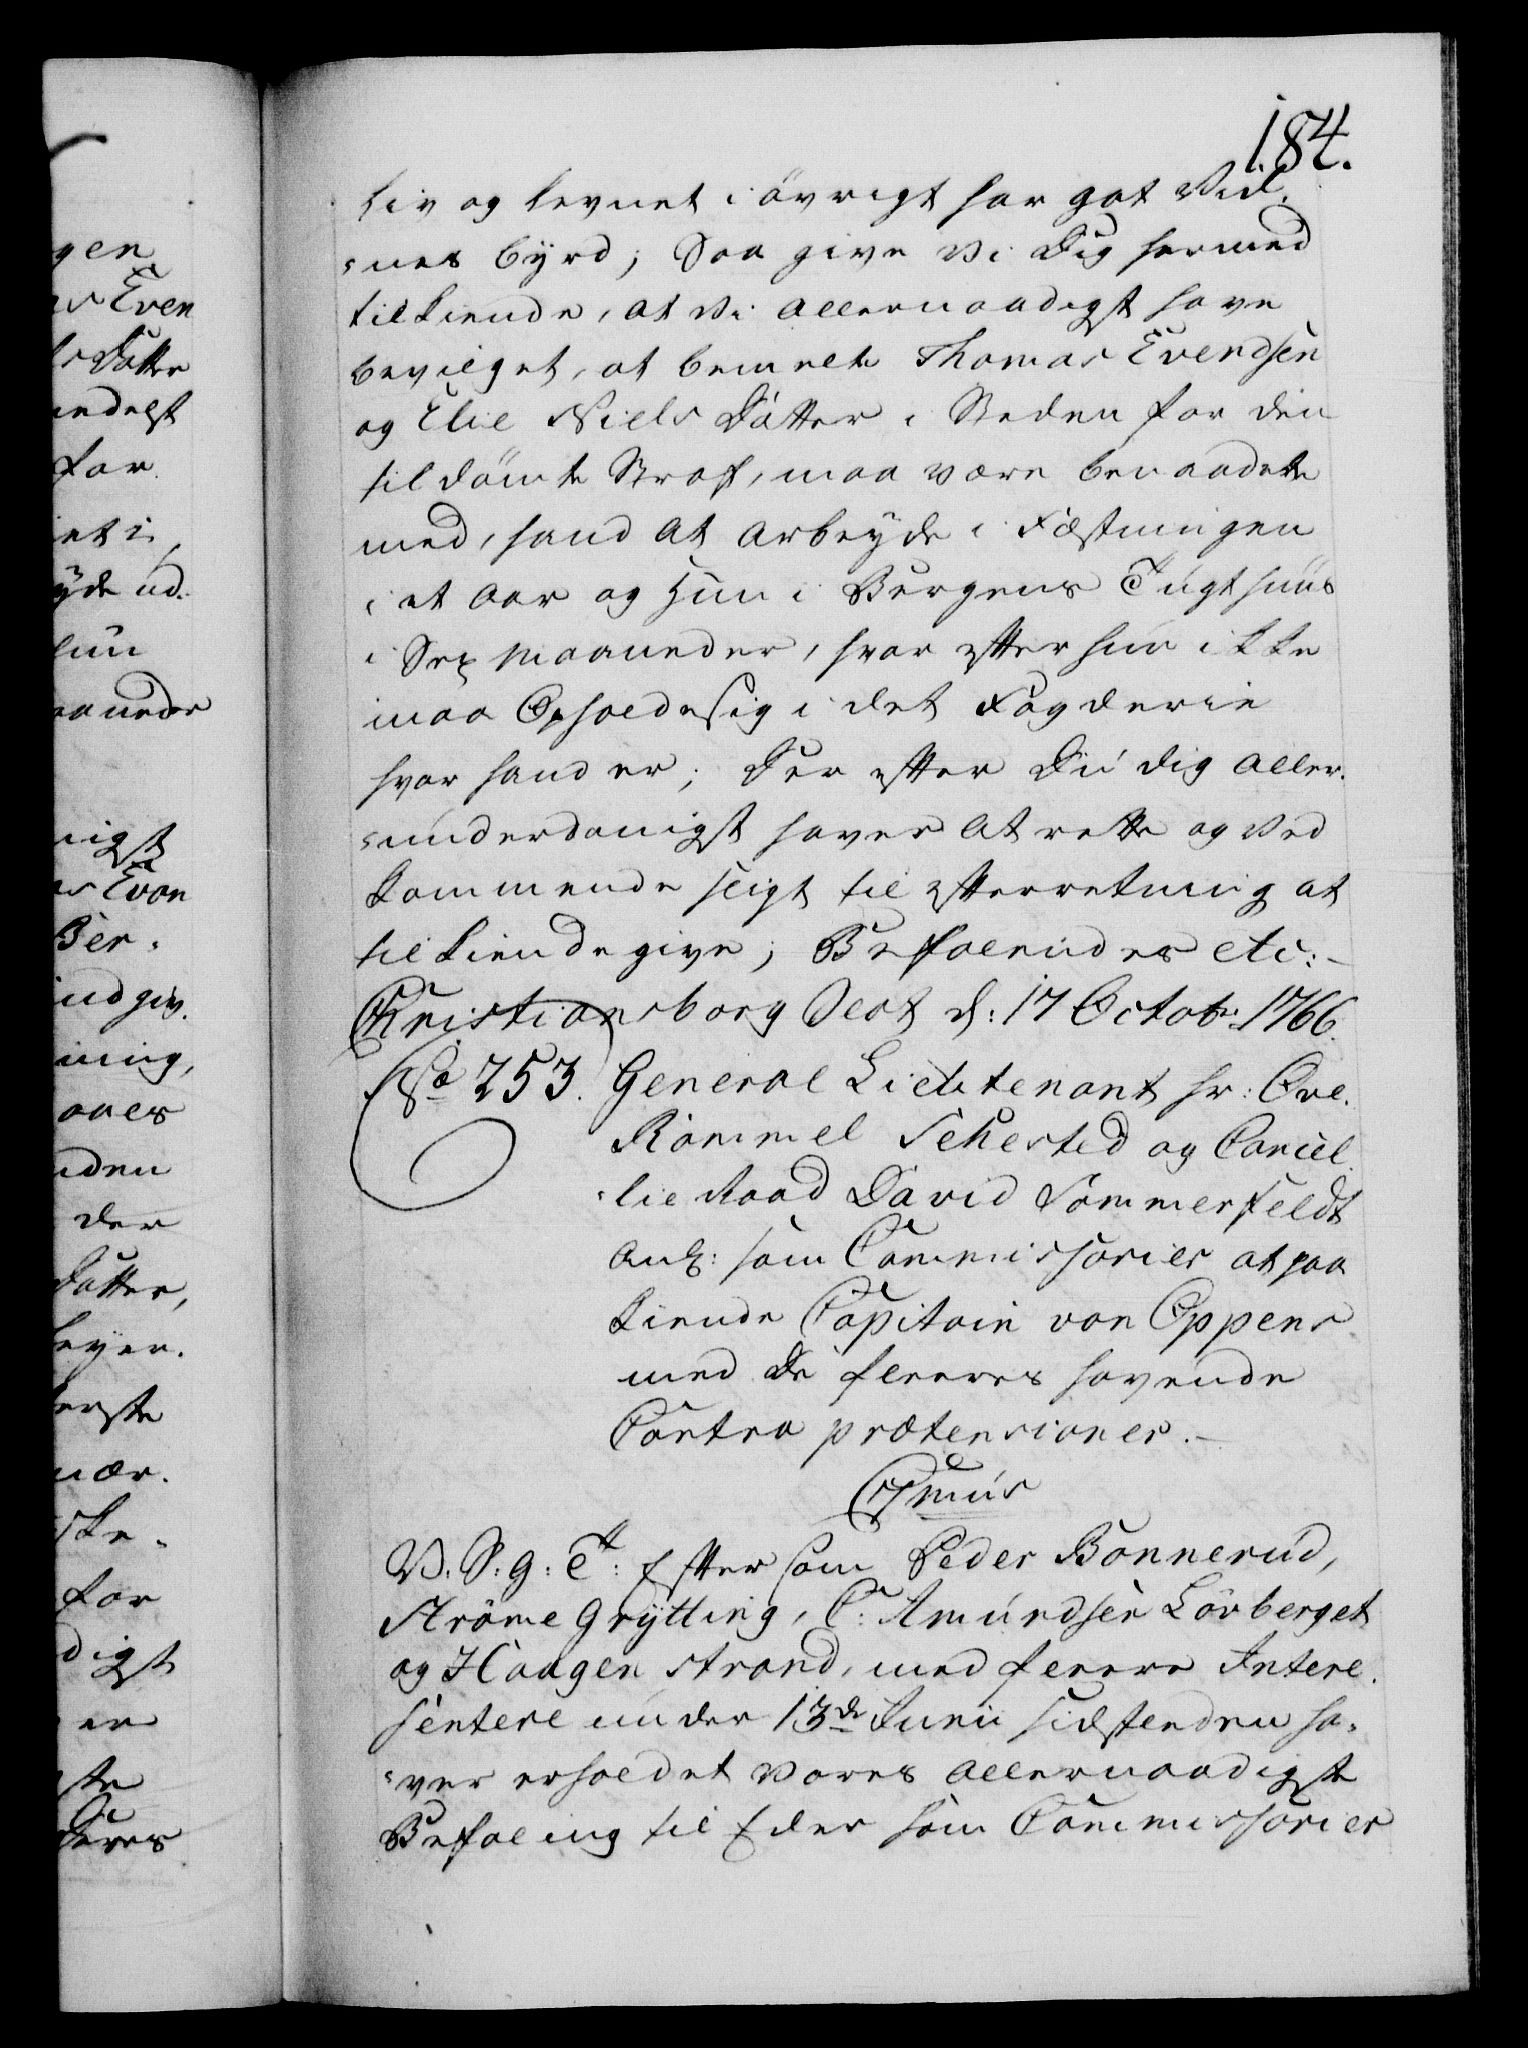 184.
Liv og levnet i övrigt har got Vid¬
"nes byrd; Saa give Vi Dig hermed
tilkiende, at Vi allernaadigst have
bevilget, at bemelte Thomas Evendsen
og Elie Niels Dotter i Steden for den
tildömte Straf, maa være benaadede
med, hand at arbeyde i Fæstningen
i et Aar og Hun i Bergens Tugthuus
i Sex Maaneder, hvor efter hun ikke
maa Opholde sig i det Fogderie
hvor hand er; Der efter Du dig aller¬
"underdanigst haver at rette og Ved
kommende sligt til efterretning at
tilkiendegive; Befalendes etc:
Christiansborg Slot d: 17 Octobr: 1766.
No 253. General Lieutenant hr: Ove
Römmel Sehested og Cancel
"lie Raad David Sommerfeldt
ang: som Commissarier at paa
kiende Capitain von Oppens
med De fleeres havende
Contra prætensioner.
Cmus
V. S. g: T: Eftersom Peder Bonnerud,
Ströme Grÿtting, C: Amundsen Lövberget
og Haagenstrand, med fleere Intere¬
sentere under 13de Junii sidstleden ha¬
"ver erholdet Vores Allernaadigste
Befaling til Eder som Commissarier
gen
Even
Dotter
medelst
for
et i
yde ud.
hun
maaneder
nigst
Even
Ber¬
ning,
der
Dotter,
for
digst
er